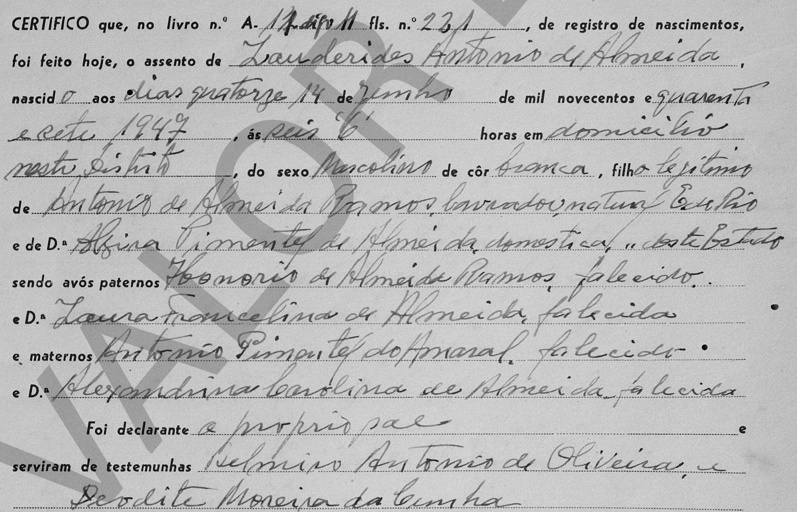 CERTIFICO que, no livro n.º A. 11 digo 11 fls. n.º 231, de registro de nascimentos,
foi feito hoje, o assento de Lauderides Antonio de Almeida,
nascido aos dias quatorze 14 de Junho de mil novecentos e quarenta
e sete 1947, ás seis "6" horas em domicilio
neste Distrito, do sexo Masculino de côr branca, filho legitimo
de Antonio de Almeida Ramos, lavrador, natural E. do Rio
e de D.ª Alzira Pimentel de Almeida, domestica, " deste Estado
sendo avós paternos Honorio de Almeida Ramos, falecido.
e D.ª Laura Francelina de Almeida, falecida
e maternos Antonio Pimentel do Amaral, falecido
e D.ª Alexandrina Carolina de Almeida, falecida
Foi declarante o proprio pae e
serviram de testemunhas Belmiro Antonio de Oliveira, e
Deodite Moreira da Cunha
VALOR